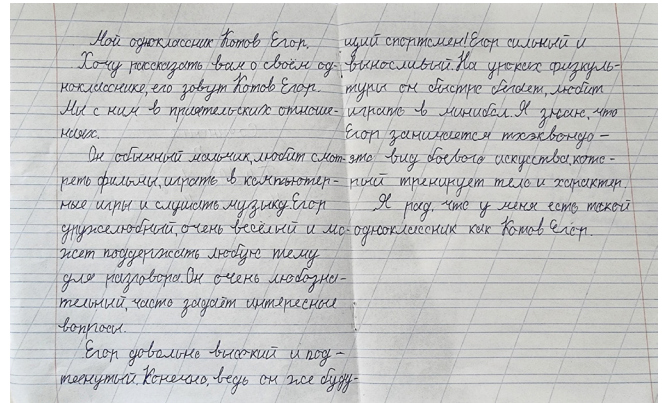 Мой одноклассник Котов Егор.
Хочу рассказать вам о своём од-
нокласснике, его зовут Котов Егор.
Мы с ним в приятельских отноше-
ниях.
Он обычный мальчик, любит смот-
реть фильмы, играть в компьютер-
ные игры и слушать музыку. Егор
дружелюбный, очень весёлый и мо-
жет поддержать любую тему
для разговора. Он очень любозна-
тельный, часто задаёт интересные
вопросы.
Егор довольно высокий и под-
тянутый. Конечно, ведь он же буду-
щий спортсмен! Егор сильный и
выносливый. На уроках физкуль-
туры он быстро бегает, любит
играть в минибол. Я знаю, что
Егор занимается тхэквондо -
это вид боевого искусства, кото-
рый тренирует тело и характер.
Я рад, что у меня есть такой
одноклассник как Котов Егор.